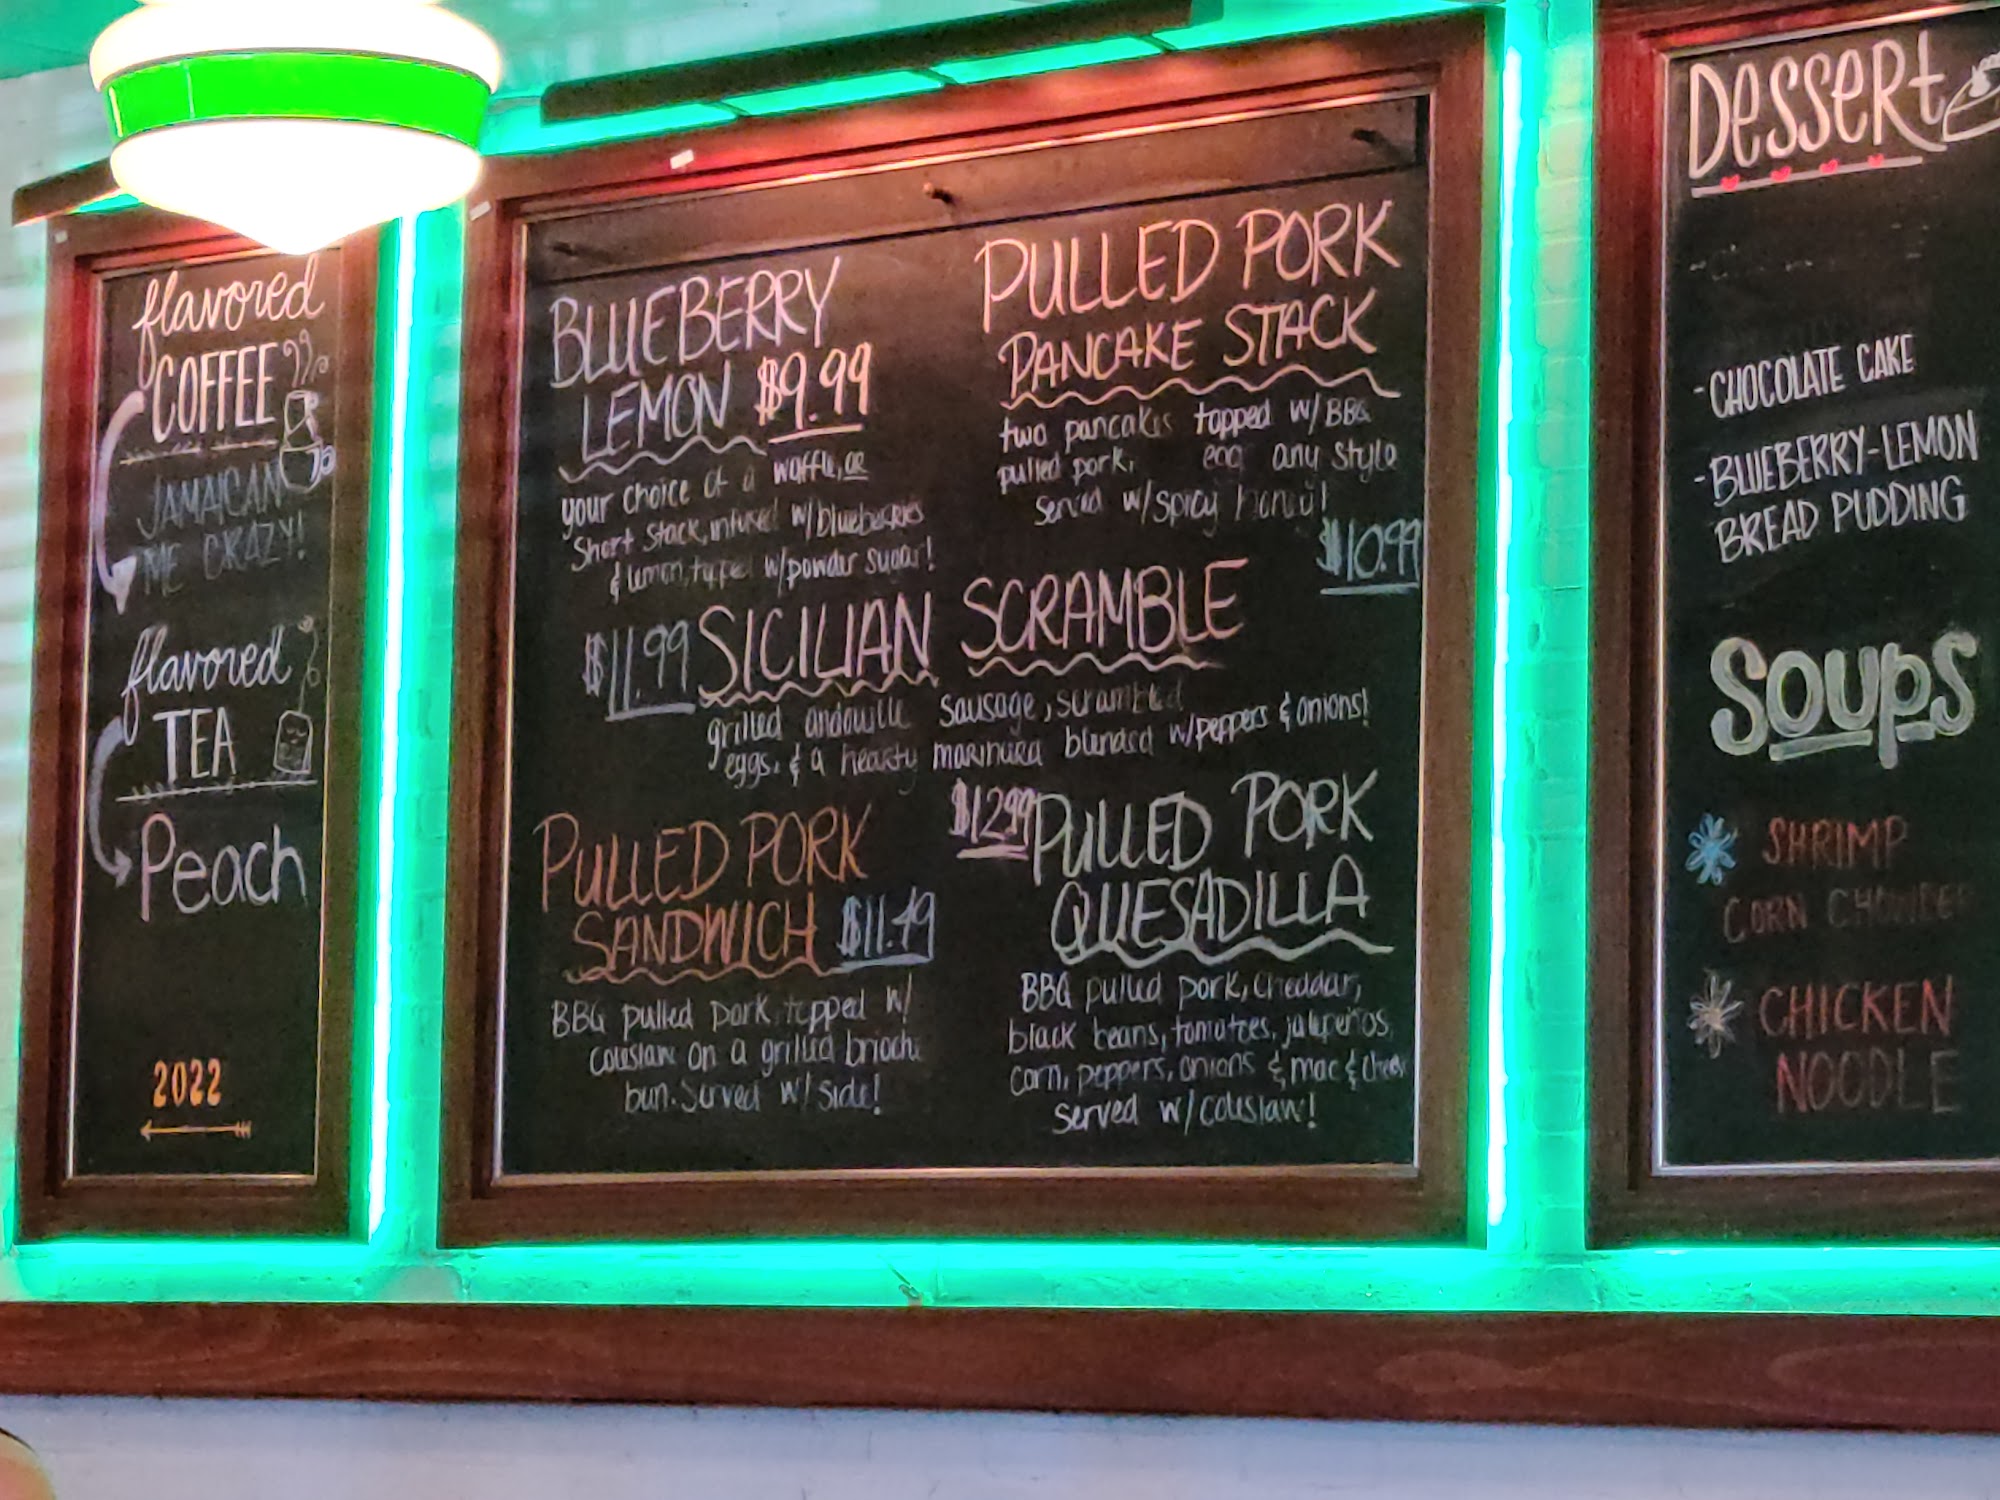 flavored
COFFEE
JAMAICAN
ME CRAZY!
flavored
TEA
Peach
2022
BLUEBERRY
LEMON $9.99
your choice of a waffle, OR
Short Stack, infused w/blueberries
& lemon, topped w/powder sugar!
PULLED PORK
PANCAKE STACK
two pancakes topped w/BBQ
pulled pork, egg any style
served w/spicy honey!
$10.99
$11.99 SICILIAN SCRAMBLE
grilled andouille sausage, scrambled
eggs, & a hearty marinara blended w/peppers & onions!
PULLED PORK
SANDWICH $11.49
BBQ pulled pork, topped w/
coleslaw on a grilled brioche
bun. Served w/side!
$12.99 PULLED PORK
QUESADILLA
BBQ pulled pork, cheddar,
black beans, tomatoes, jalapeños,
corn, peppers, onions & mac & cheese
served w/coleslaw!
Dessert
-CHOCOLATE CAKE
-BLUEBERRY-LEMON
BREAD PUDDING
Soups
SHRIMP
CORN CHOWDER
CHICKEN
NOODLE